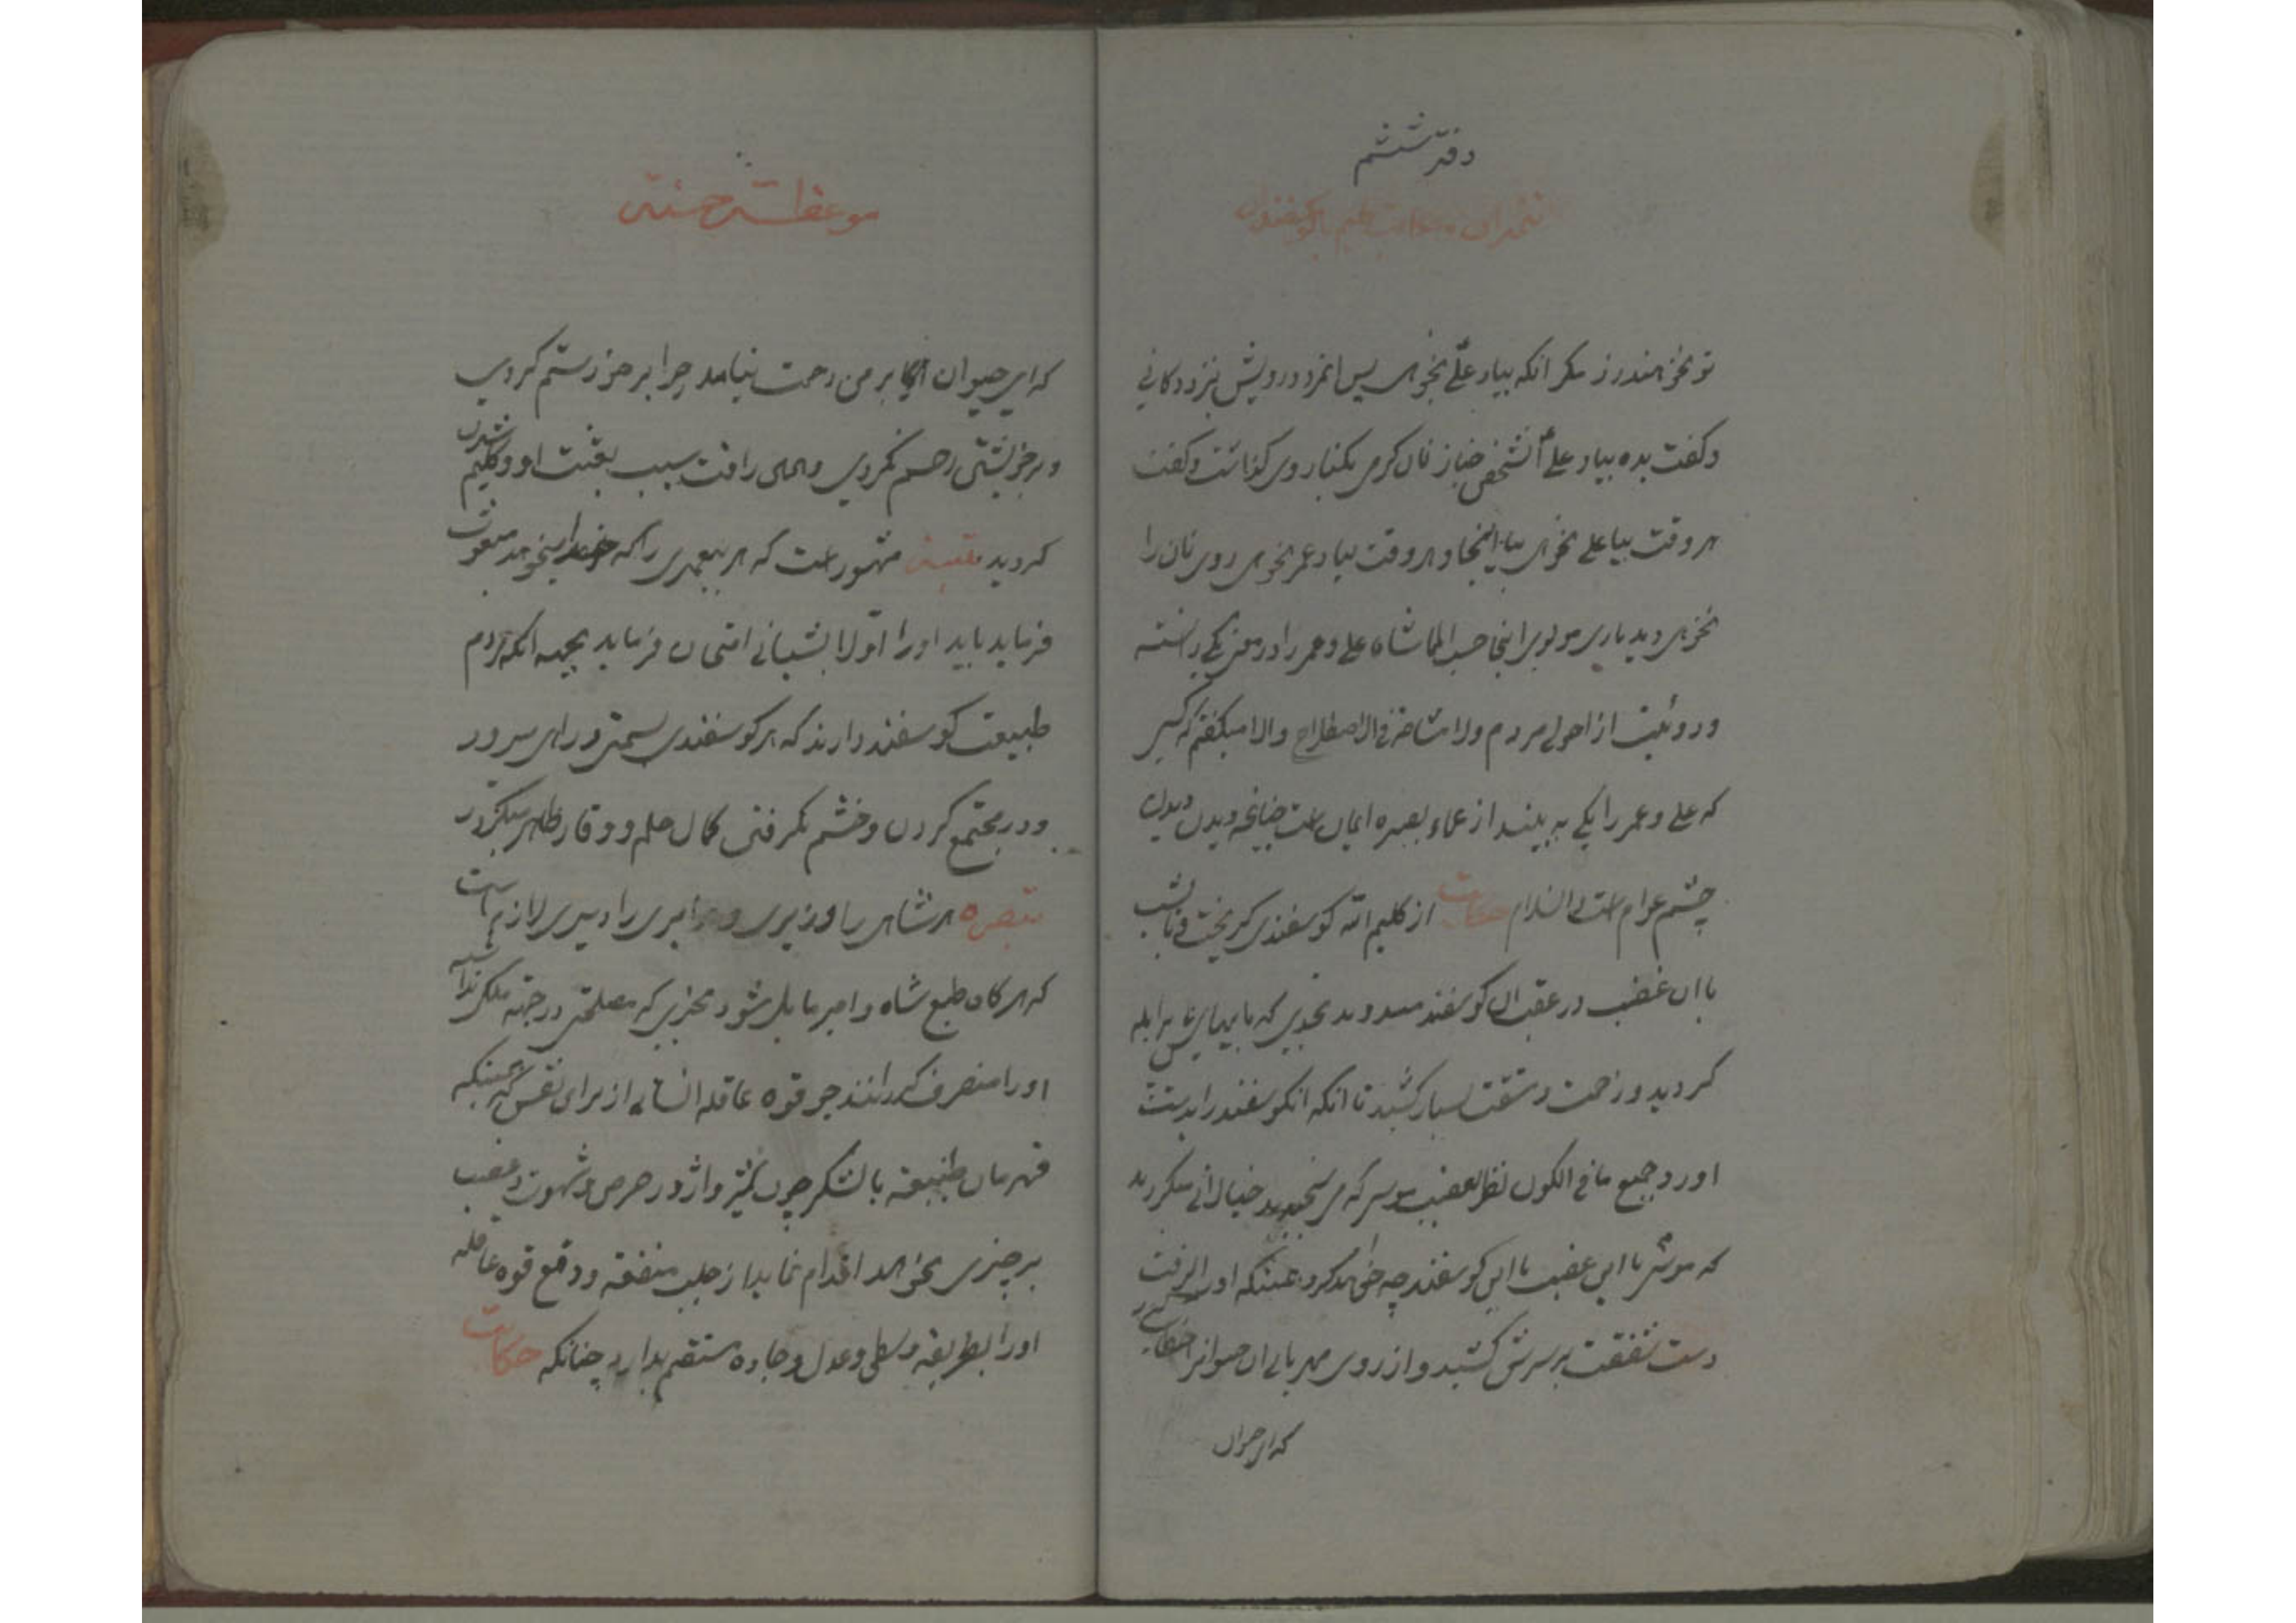 دفتر ششم
تو نخواهند زد مگر انکه بیاد علی بخوری پس انمرد درویش نزد دکانی
و گفت بده بیاد علی انشخص خباز نان کرمی بکنار وی گذاشت و گفت
هر وقت بیاد علی بخوری بیا اینجا و هر وقت بیاد عمر بخوری روی نان را
نخواهی دید باری مولوی اینجا حسب علی و عمر را در معنی یکی دانسته
از احولی مردم ولا مشاحة فی الاصطلاح والا میگفتم که کسی
که علی و عمر را یکی به بیند از عماء بصیره ایمان است چنانچه دیدن
چشم عوام است والسلام حکایت از کلیم الله کوسفندی گریخت
با ان غضب در عقب ان کوسفند میدوید بحدی که پاهایش پر ابله
کردید و زحمت و مشقت بسیار کشید تا انکه انکوسفند را بدست
اورد و جمیع ما فی الکون نظر بغضب خیالاتی میکردند
که موسی با این غضب با این کوسفند چه خواهد کرد همینکه او را گرفت
دست شفقت بر سرش کشید و از روی مهربانی ان حیوانرا
که ای حیوان
موعظت حسنتی
که ای حیوان بر من رحمت نیامد چرا بر خود ستم کردی
و بر خویشتن رحم نکردی و همان رافت سبب بعثت او و کلیم شدن
کردید مشهور است که هر پیغمبری را که میخواهد مبعوث
فرماید باید او را اولا بشبانی امتحان فرماید بجهه انکه مردم
طبیعت کوسفند دارند که هر کوسفندی بسمتی و راهی میرود
و در مجتمع کردن و خشم نگرفتن کمال حلم و وقار ظاهر میکردد
تبصره هر شاهی را وزیری و هر امیری را دبیری لازم است
که هر گاه طبع شاه و امیر مایل شود بچیزی که مصلحتی در جهة ملک نداشته
او را منصرف گردانند چو قوه عاقله انسانی از برای نفس که همینکه
قهرمان طبیعة با لشکر چون حرص و شهوت و غضب
بر چیزی بخواهد اقدام نماید از جلب منفعة و دفع قوه عاقله
او را بطریقه وسطی و عدل و جاده مستقیم بدارد چنانکه حکایت